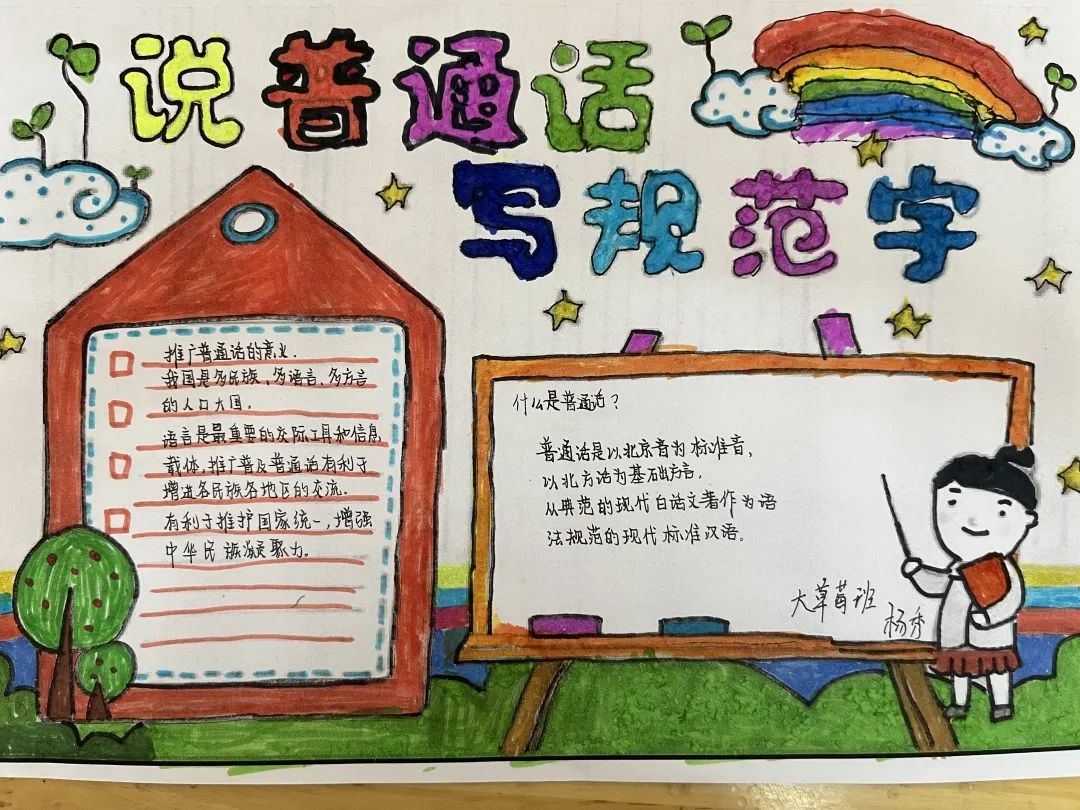 说普通话
写规范字
推广普通话的意义.
我国是多民族、多语言、多方言
的人口大国.
语言是最重要的交际工具和信息
载体,推广普及普通话有利于
增进各民族各地区的交流.
有利于推护国家统一,增强
中华民族凝聚力。
什么是普通话?
普通话是以北京音为标准音,
以北方话为基础方言,
从典范的现代白话文著作为语
法规范的现代标准汉语。
大草莓班
杨秀